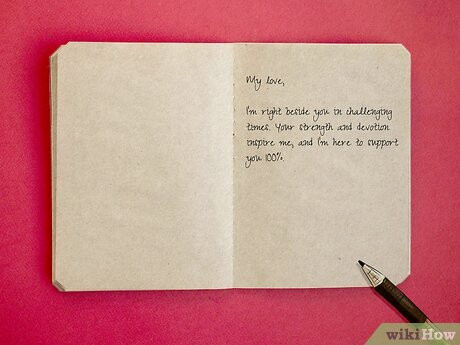 My love,
I'm right beside you in challenging
times. Your strength and devotion
inspire me, and I'm here to support
you 100%.
wikiHow